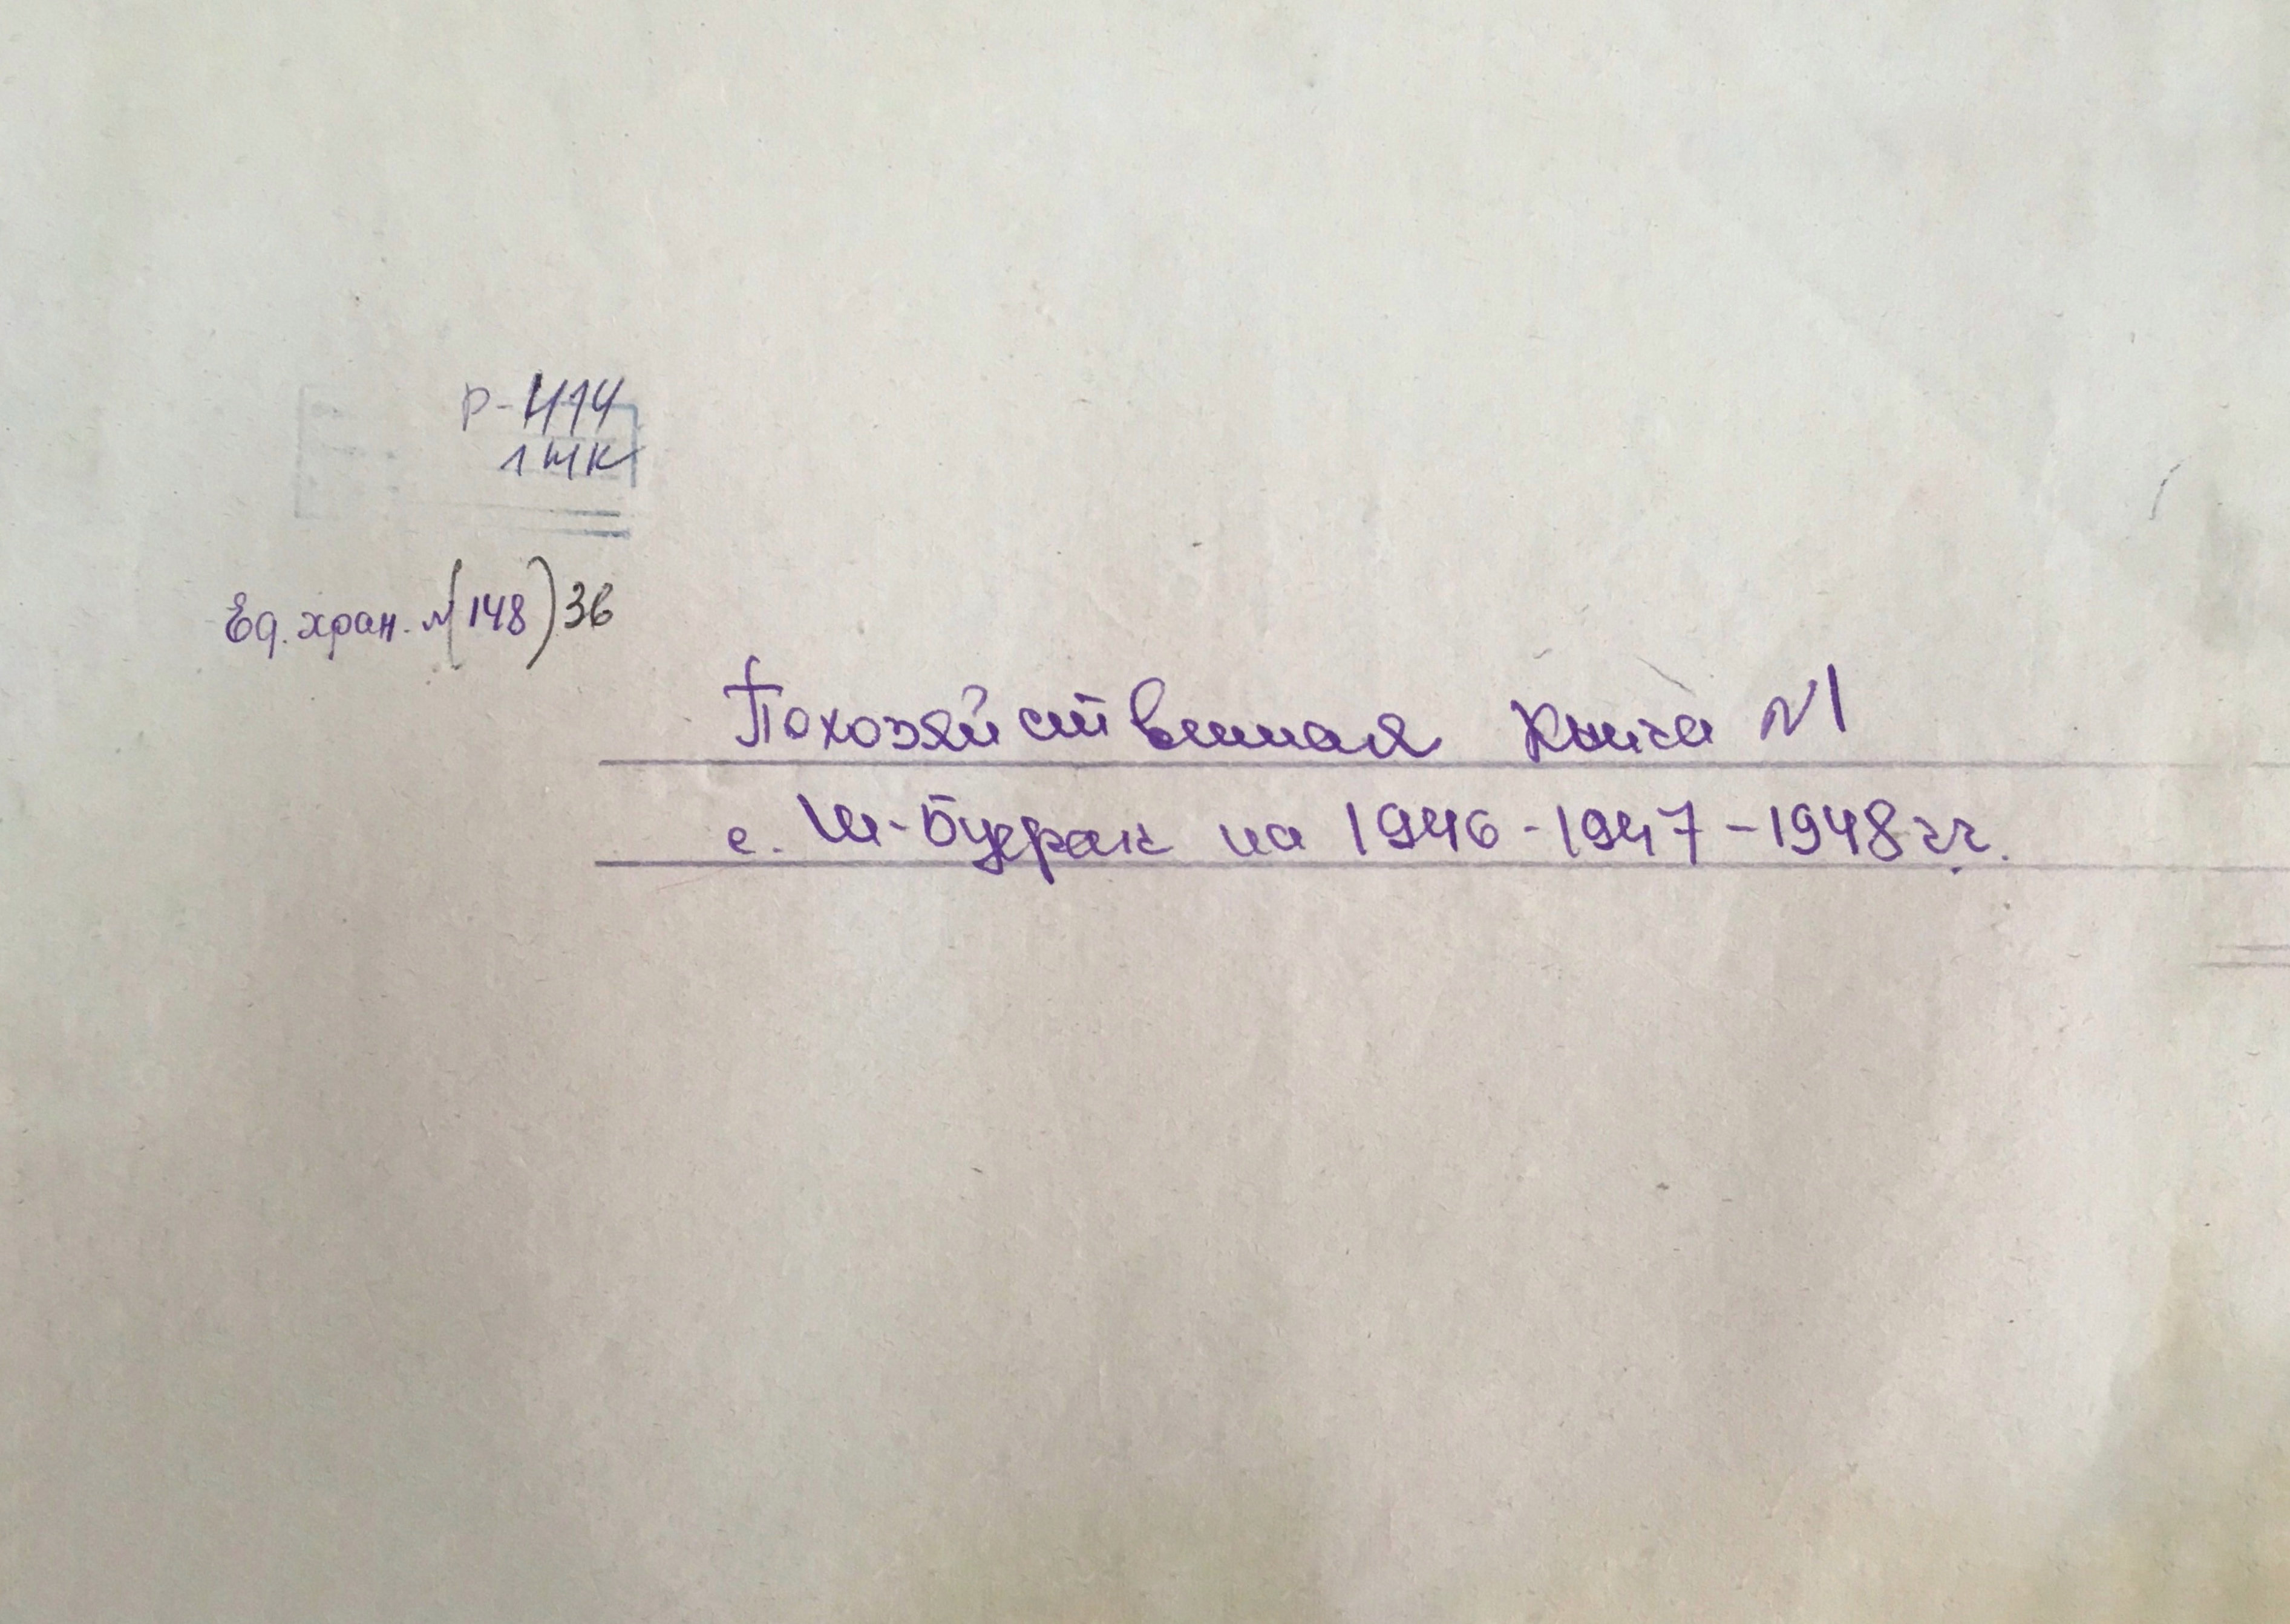 Р-414
1 шк
Ед. хран. № (148) 36
Похозяйственная книга №1
с. Ш-Буерак на 1946-1947-1948 гг.